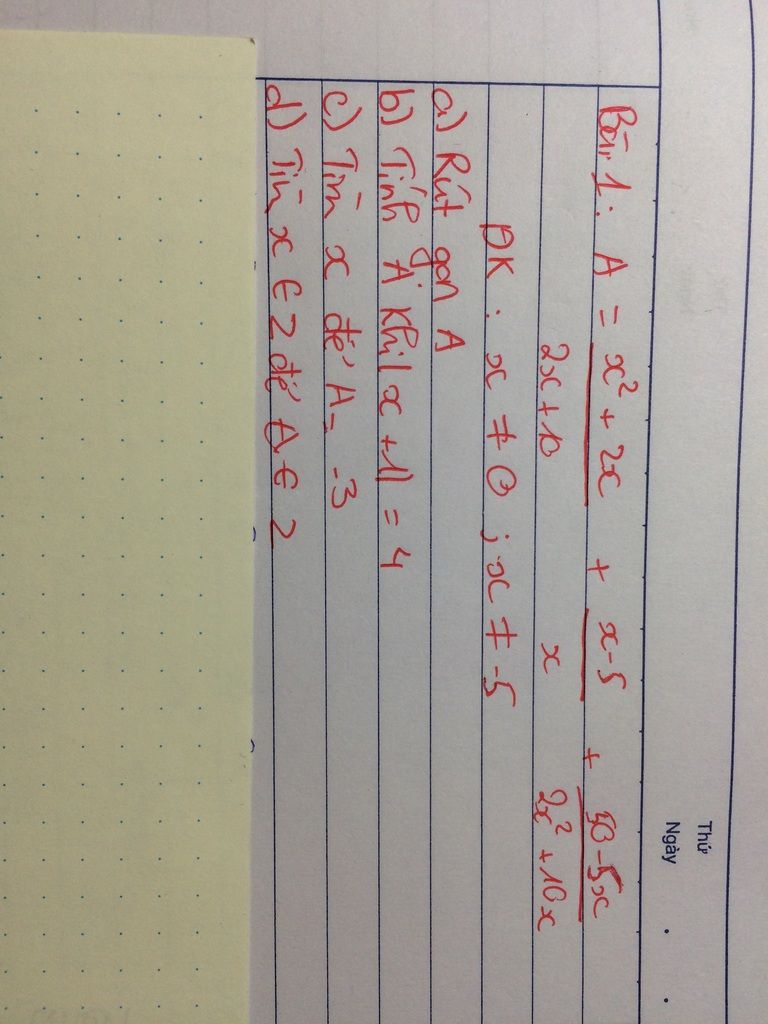 Thứ
Ngày
Bài 1: A = x² + 2x + x-5 + 50-5x
2x+10 x 2x² + 10x
ĐK : x ≠ 0 ; x ≠ -5
a) Rút gọn A
b) Tính A khi |x +1| = 4
c) Tìm x để A = -3
d) Tìm x ∈ Z để A ∈ Z